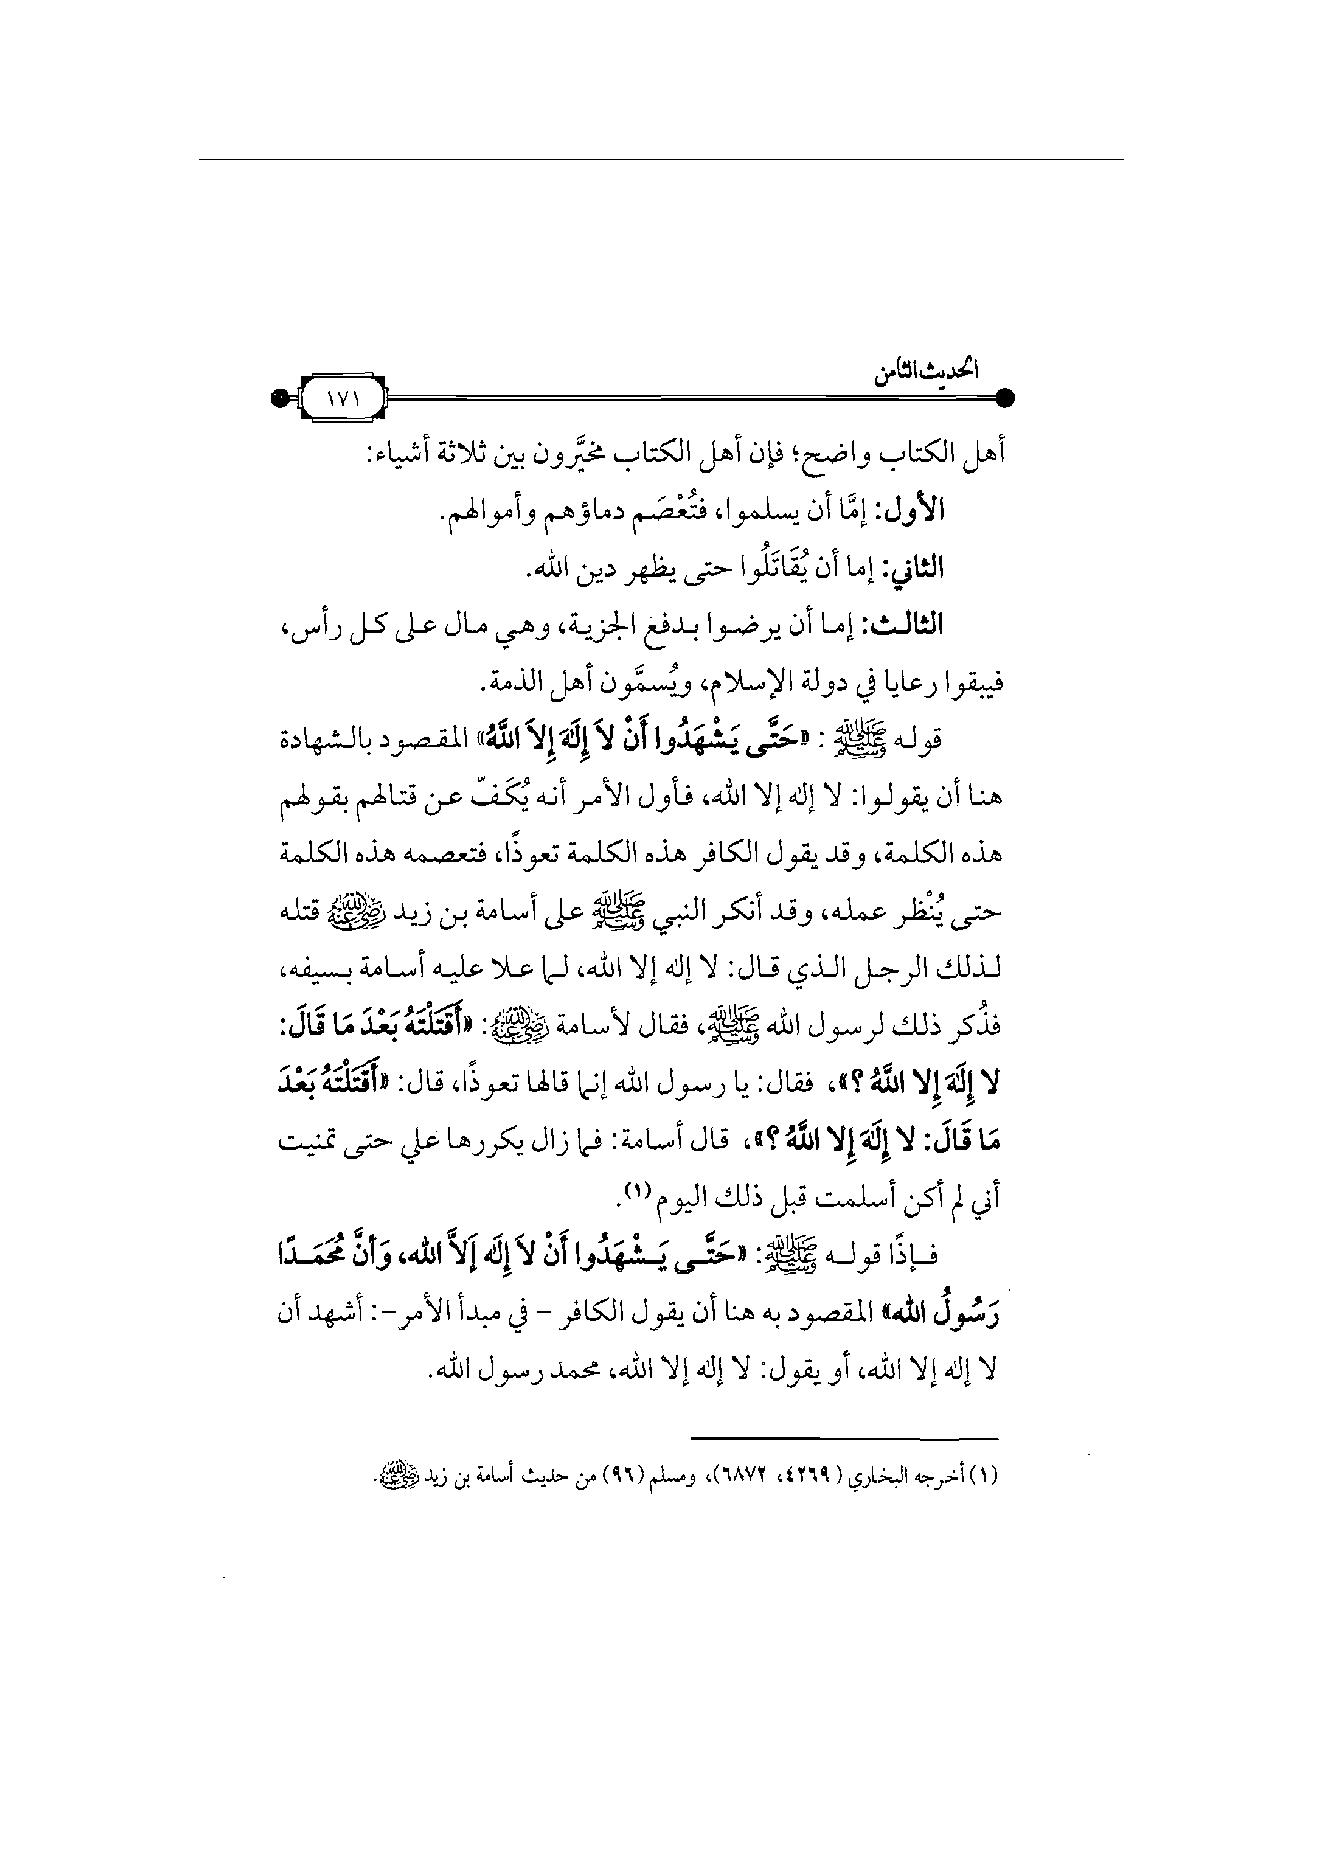 الحديث الثامن
١٧١
أهل الكتاب واضح؛ فإن أهل الكتاب مخيَّرون بين ثلاثة أشياء:
الأول: إمَّا أن يسلموا، فتُعْصَم دماؤهم وأموالهم.
الثاني: إما أن يُقَاتَلُوا حتى يظهر دين الله.
الثالث: إما أن يرضوا بدفع الجزية، وهي مال على كل رأس،
فيبقوا رعايا في دولة الإسلام، ويُسمَّون أهل الذمة.
قوله ﷺ : «حَتَّى يَشْهَدُوا أَنْ لاَ إِلَهَ إِلاَ اللَّهُ» المقصود بالشهادة
هنا أن يقولوا: لا إله إلا الله، فأول الأمر أنه يُكَفّ عن قتالهم بقولهم
هذه الكلمة، وقد يقول الكافر هذه الكلمة تعوذًا، فتعصمه هذه الكلمة
حتى يُنْظر عمله، وقد أنكر النبي ﷺ على أسامة بن زيد رضي الله عنه قتله
لذلك الرجل الذي قال: لا إله إلا الله، لما علا عليه أسامة بسيفه،
فذُكر ذلك لرسول الله ﷺ، فقال لأسامة رضي الله عنه: «أَقَتَلْتَهُ بَعْدَ مَا قَالَ:
لا إِلَهَ إِلا اللَّهُ ؟»، فقال: يا رسول الله إنما قالها تعوذًا، قال: «أَقَتَلْتَهُ بَعْدَ
مَا قَالَ: لا إِلَهَ إِلا اللَّهُ ؟»، قال أسامة: فما زال يكررها علي حتى تمنيت
أني لم أكن أسلمت قبل ذلك اليوم(١).
فإذًا قوله ﷺ: «حَتَّى يَشْهَدُوا أَنْ لاَ إِلَه إِلاَّ الله، وَأَنَّ مُحَمَدًا
رَسُولُ الله» المقصود به هنا أن يقول الكافر - في مبدأ الأمر-: أشهد أن
لا إله إلا الله، أو يقول: لا إله إلا الله، محمد رسول الله.
(١) أخرجه البخاري (٤٢٦٩، ٦٨٧٢)، ومسلم (٩٦) من حديث أسامة بن زيد رضي الله عنه.